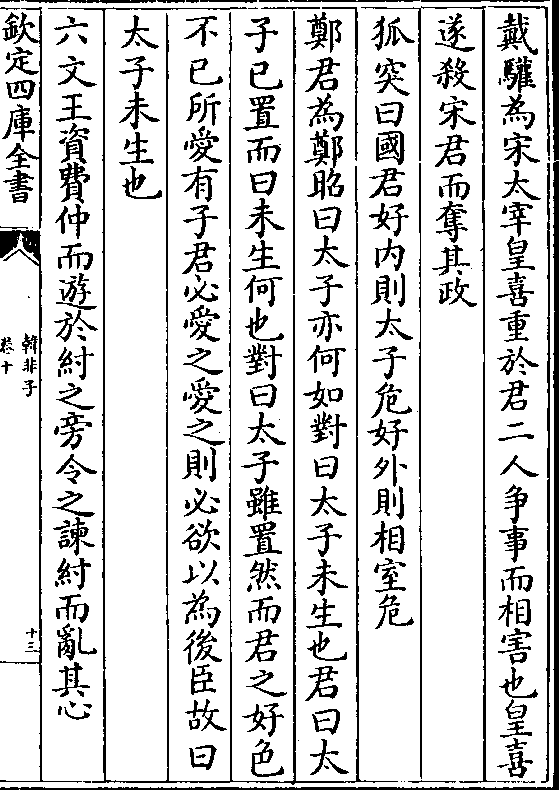 戴驩為宋太宰皇喜重於君二人争事而相害也皇喜
遂殺宋君而奪其政
狐突曰國君好内則太子危好外則相室危
鄭君為鄭昭曰太子亦何如對曰太子未生也君曰太
子已置而曰未生何也對曰太子雖置然而君之好色
不已所愛有子君必愛之愛之則必欲以為後臣故曰
太子未生也
六文王資費仲而遊於紂之旁令之諫紂而亂其心
欽定四庫全書
韓非子
卷十
十三